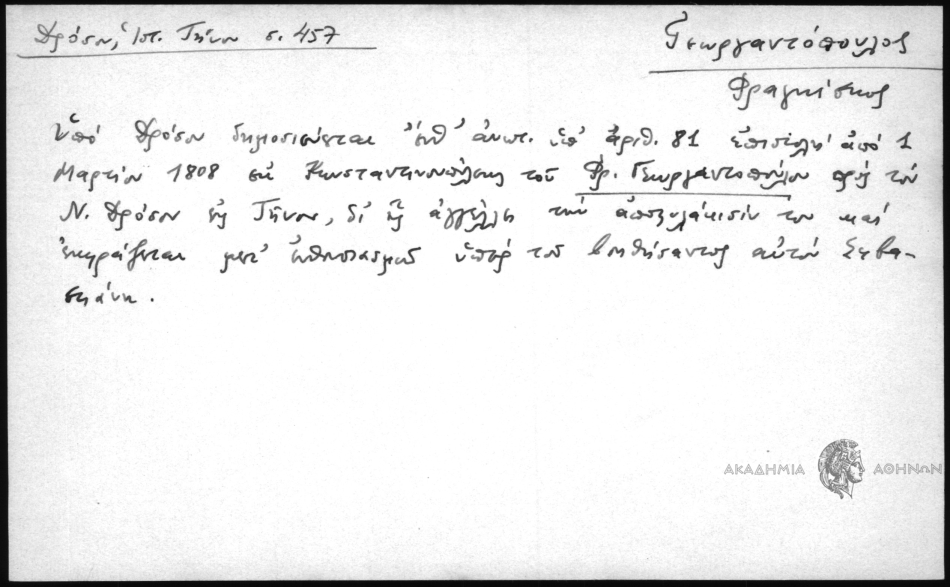 Δρόσου, Ἱστ. Τήνου σ. 457
Γεωργαντόπουλος
Φραγκίσκος
Ὑπό Δρόσου δημοσιεύεται ἔνθ' ἀνωτ. ὑπ' ἀριθ. 81 ἐπιστολή ἀπό 1
Μαρτίου 1808 ἐκ Κωνσταντινουπόλεως τοῦ Φρ. Γεωργαντοπούλου πρός τόν
Ν. Δρόσον εἰς Τῆνον, δι' ἧς ἀγγέλλει τήν ἀποφυλάκισίν του καί
ἐκφράζεται μετ' ἐνθουσιασμοῦ ὑπέρ τοῦ βοηθήσαντος αὐτόν Σεβα-
στιάνι.
ΑΚΑΔΗΜΙΑ ΑΘΗΝΩΝ